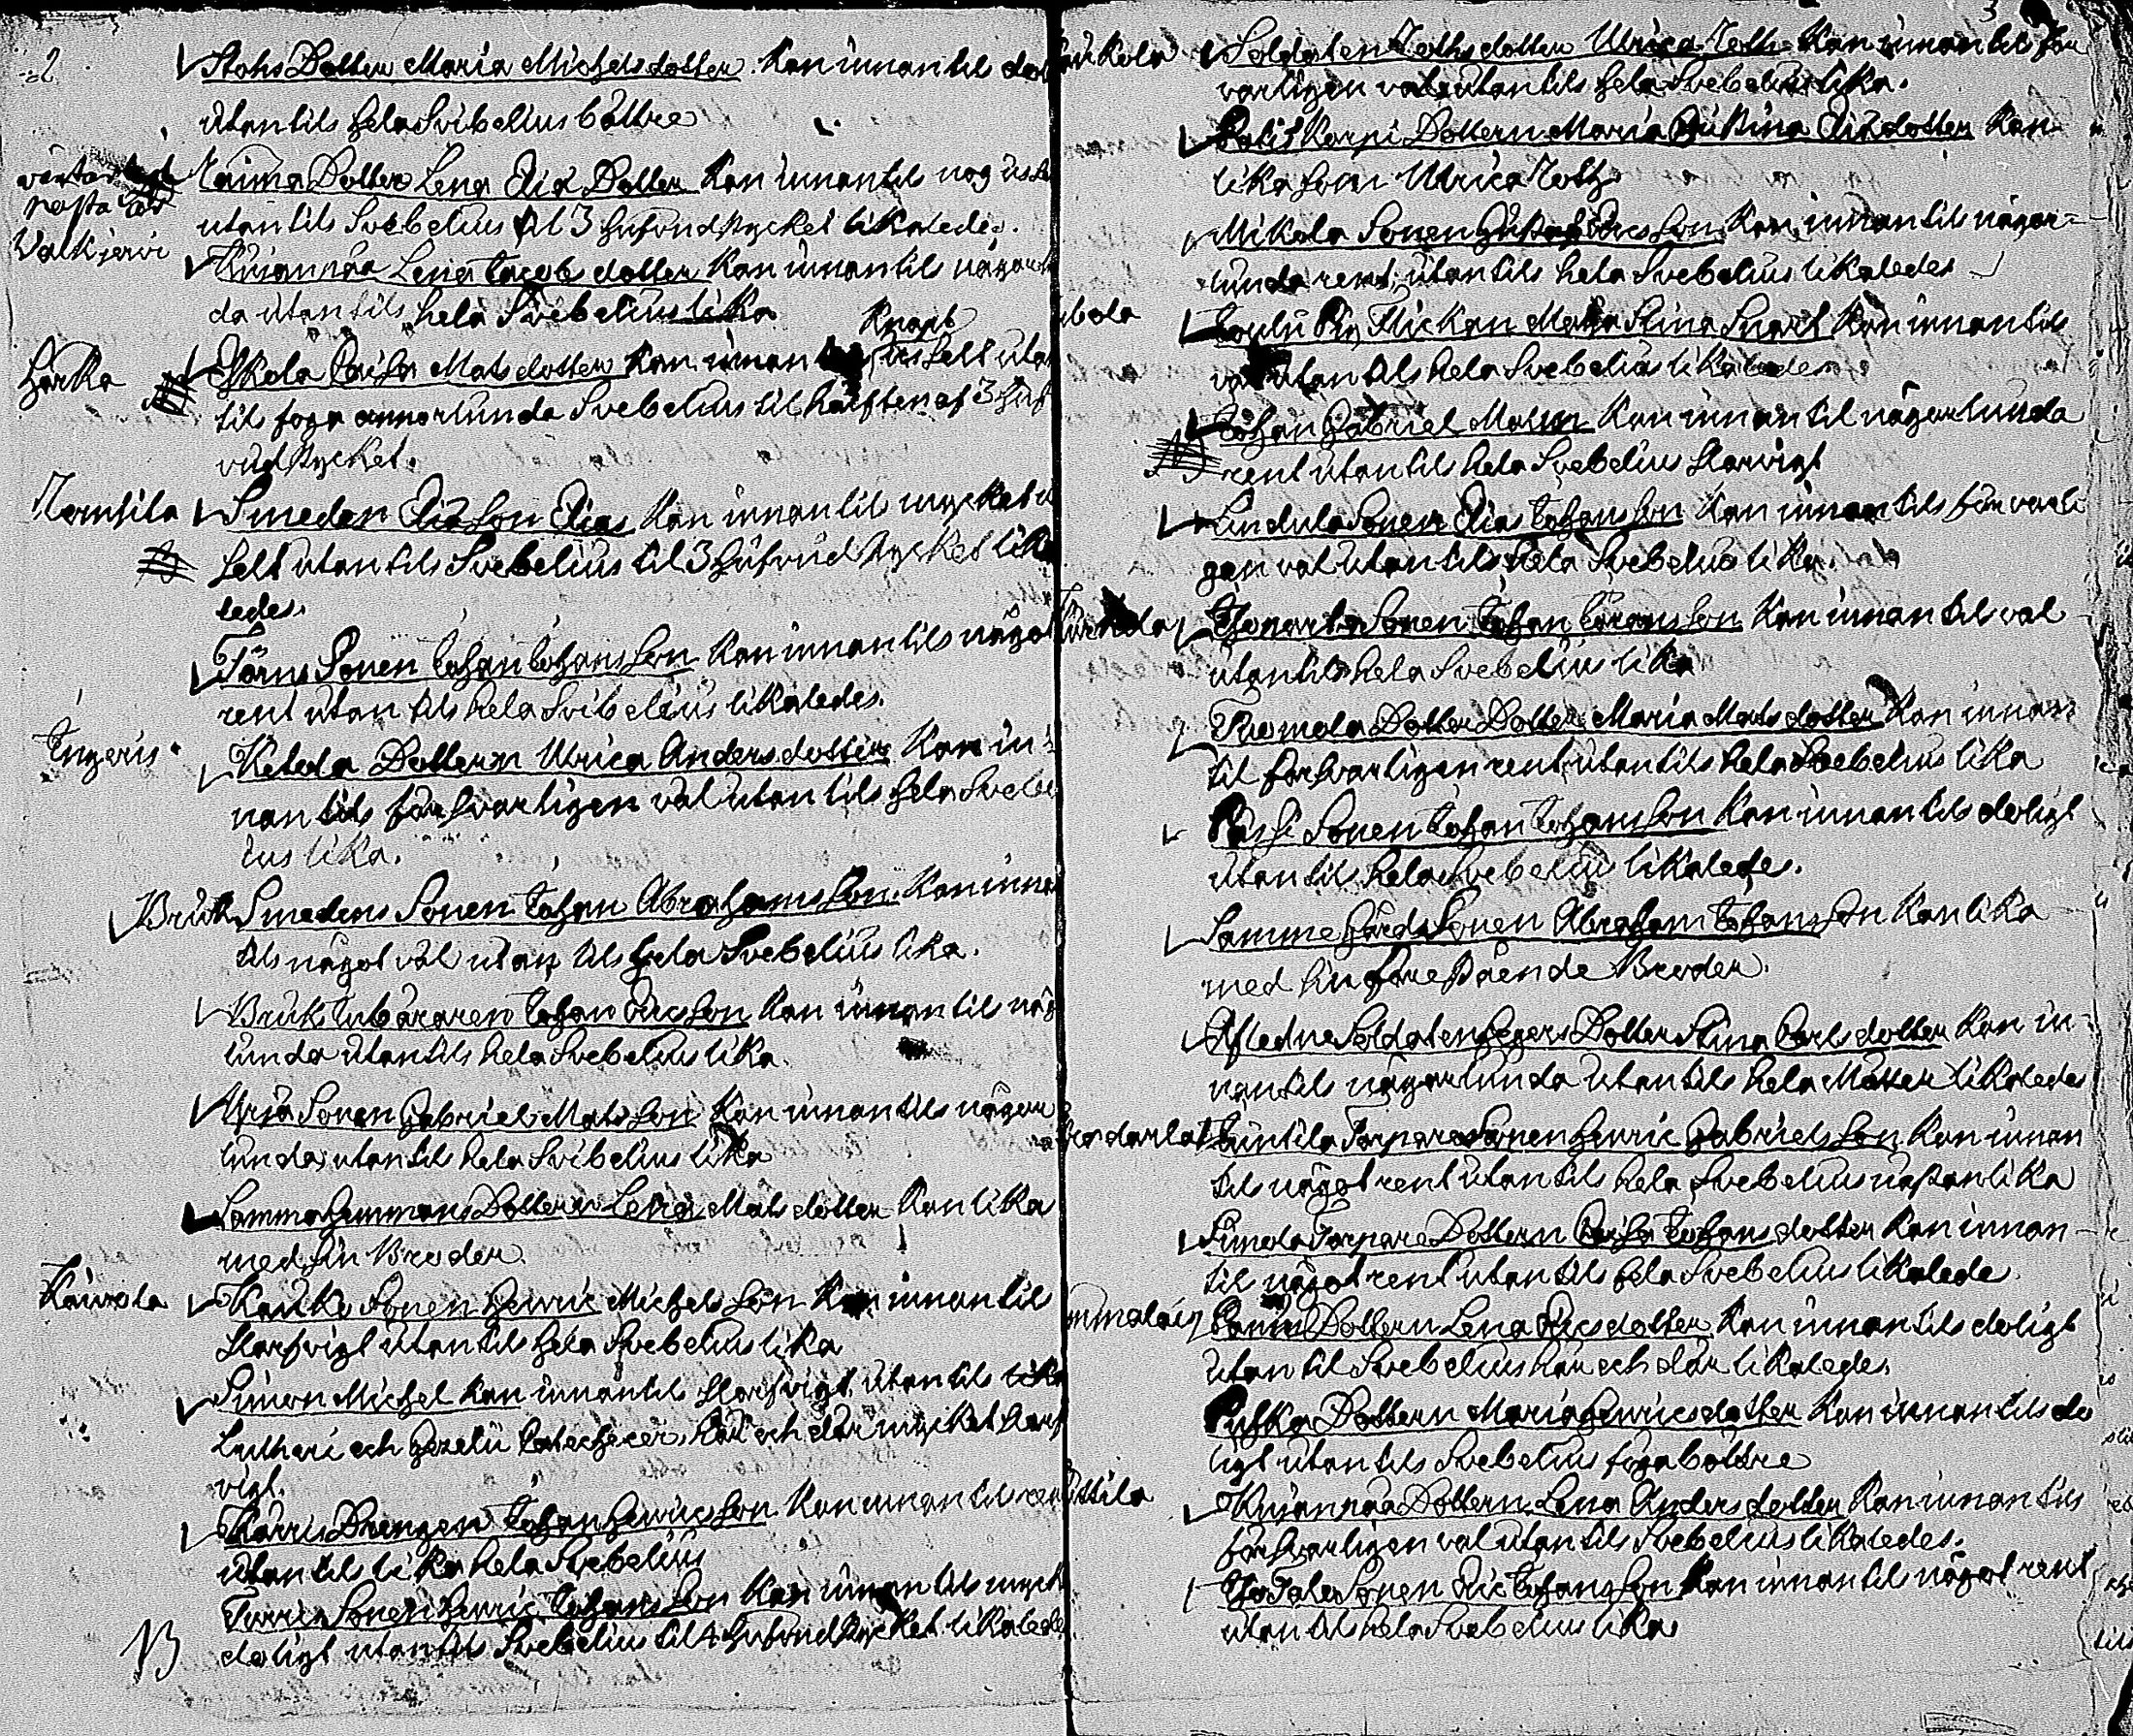 2.
Stohs Dotter Maria Michelsdotter. Kan innan til
utan tils hela Svibelius bättre
väntar
nästa åhr
Dotter Lena Elia Dotter Kan innan til nog
utan tils Svebelius til 3 hufvudstycket likalede.
Walkjervi
Lena Jacobs dotter Kan innan tils någorl
da utan tils hela Svebelius lika
Knapt
Härka
Caisa Matsdotter Kan innan selt utan
til foga annorlunda Svebelius til hälften af 3 huf
vudstycket.
Smeden Eliæ Son Elias Kan innan til mycket u
selt utan tils Svebelius til 3 hufvud stycket lika
ledes.
Törns Sonen Johan Johans Son Kan innan tils något
rent utan tils hela Svibelius likaledes.
Ingeris
Ketola Dottern Ulrica Andersdotter Kan in
nan tils försvarligen väl utan tils hela Svebel
ius lika.
Bruk Smedens Sonen Johan Abrahams Son Kan innan
tils något väl utan tils hela Svebelius lika.
Bruks Johan Ericson Kan innan til någ
lunda utan tils hela Svebelius lika
Sonen Gabriel Mats Son Kan innan tils någor
lunda utan tils hela Svibelius lika
Samma hemmans Dottern Lena Mats dotter Kan lika
med sin Broder.
Koivola
Kauko Sonen Henric Michels Son Kan innan til
slarfvigt utan tils hela Svebelius lika
Simon Michel Kan innan tils slarfvigt, utan tils lika
Lutheri och Gezelii Catecheser, här och där mycket slarf
vigt.
Drengen Johan Henrics Son Kan innan til ren
utan tils lika hela Svebelius
Sonen Henric Johans Son Kan innan tils myck
daligt utan tils Svebelius til 4 hufvudstycket likalede
3
Soldaten Toths dotter Ulrica Toth Kan innan til för
varligen väl utan tils hela Svebelius lika.
Dottern Maria Christina Eliædotter Kan
lika som Ulrica Toth
Mikola Sonen Gustaf Ericsson Kan innan til någor-
lunda rent, utan tils hela Svebelius likaledes
Flickan Maria Stina Snart Kan innan tils
väl utan tils hela Svebelius likaledes
Johan Gabriel Malm Kan innan til någorlunda
rent utan tils hela Svebelius slarvigt
Lindula Sonen Elias Johansson Kan innan tils försvarli
gen väl utan tils hela Svebelius lika.
Sonen Johan Göransson Kan innan til väl
utan tils hela Svebelius lika
Tuomola Dotter Dotter Maria Mats dotter Kan innan
til försvarligen rent, utan tils hela Svebelius lika
Sonen Johan Johansson Kan innan tils doligt
utan til hela Svebelius likalede.
Samme Gårds Sonen Abraham Johansson Kan lika
med sin förestående Broder.
Afledne Soldaten Segers Dotter Stina Carls dotter Kan in-
nan tils någorlunda utan tils hela likaledes
Torpare Sonen Henric Gabriels Son Kan innan
tils något rent utan tils hela Svebelius nästan lika
Simola Torpare Dottern Caisa Johans dotter Kan innan
til något rent utan tils hela Svebelius likalede
Dottern Lena Ericsdotter Kan innan tils doligt
utan til Svebelius här och där likaledes.
Dottern Maria Henricsdotter Kan innan tils do
ligt utan tils Svebelius föga bättre
Dottern Lena Anders dotter Kan innan tils
försvarligen väl utan tils Svebelius likaledes.
Sonen Eric Johansson Kan innan til något rent
utan tils hela Svebelius lika